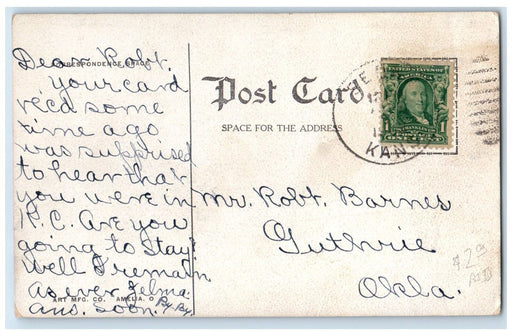 CORRESPONDENCE SPACE
Dear Robt.
Your card
rec'd some
time ago
was surprised
to hear that
you were in
K.C. Are you
going to stay?
Well I remain
As ever Zelma.
ans. soon. By. By.
ART MFG. CO. AMELIA. O
Post Card
SPACE FOR THE ADDRESS
KAN
UNITED STATES OF
AMERICA
FRANKLIN
1
Mr. Robt. Barnes
Guthrie
Okla.